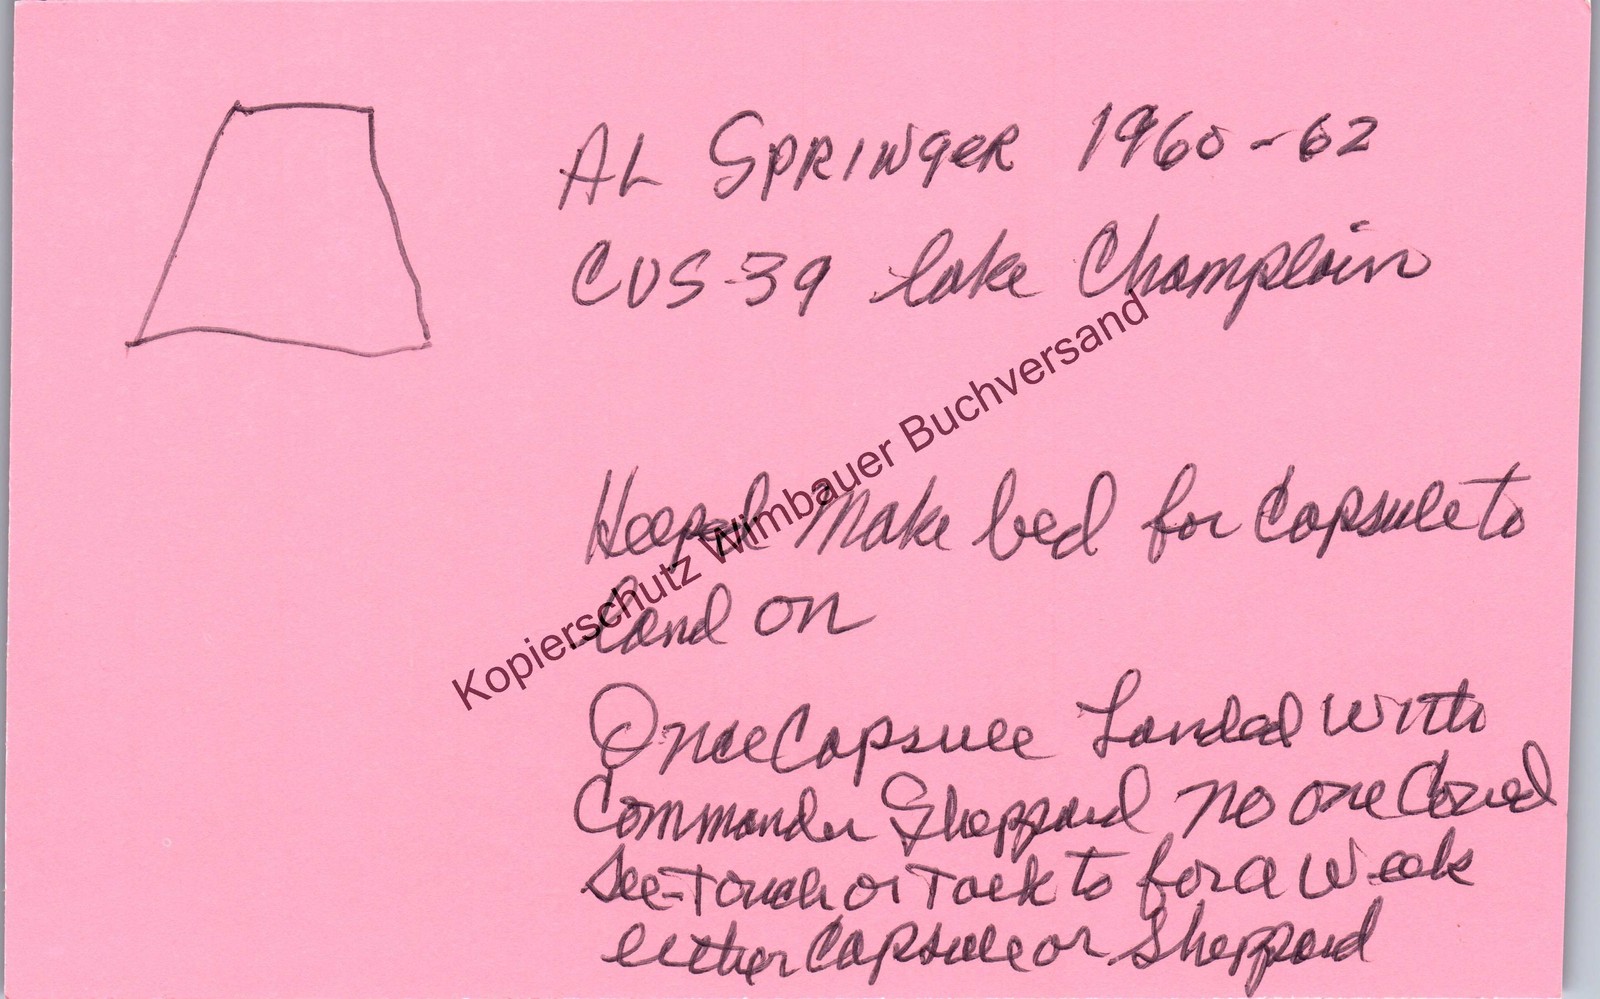 AL SPRINGER 1960-62
CVS-39 Lake Champlain
Heeped Make bed for Capsule to
Land on
Once Capsule Landed with
Commander Sheppard no one Coued
See-Touch or Talk to for a Week
either Capsule or Sheppard
Kopierschutz Wimbauer Buchversand